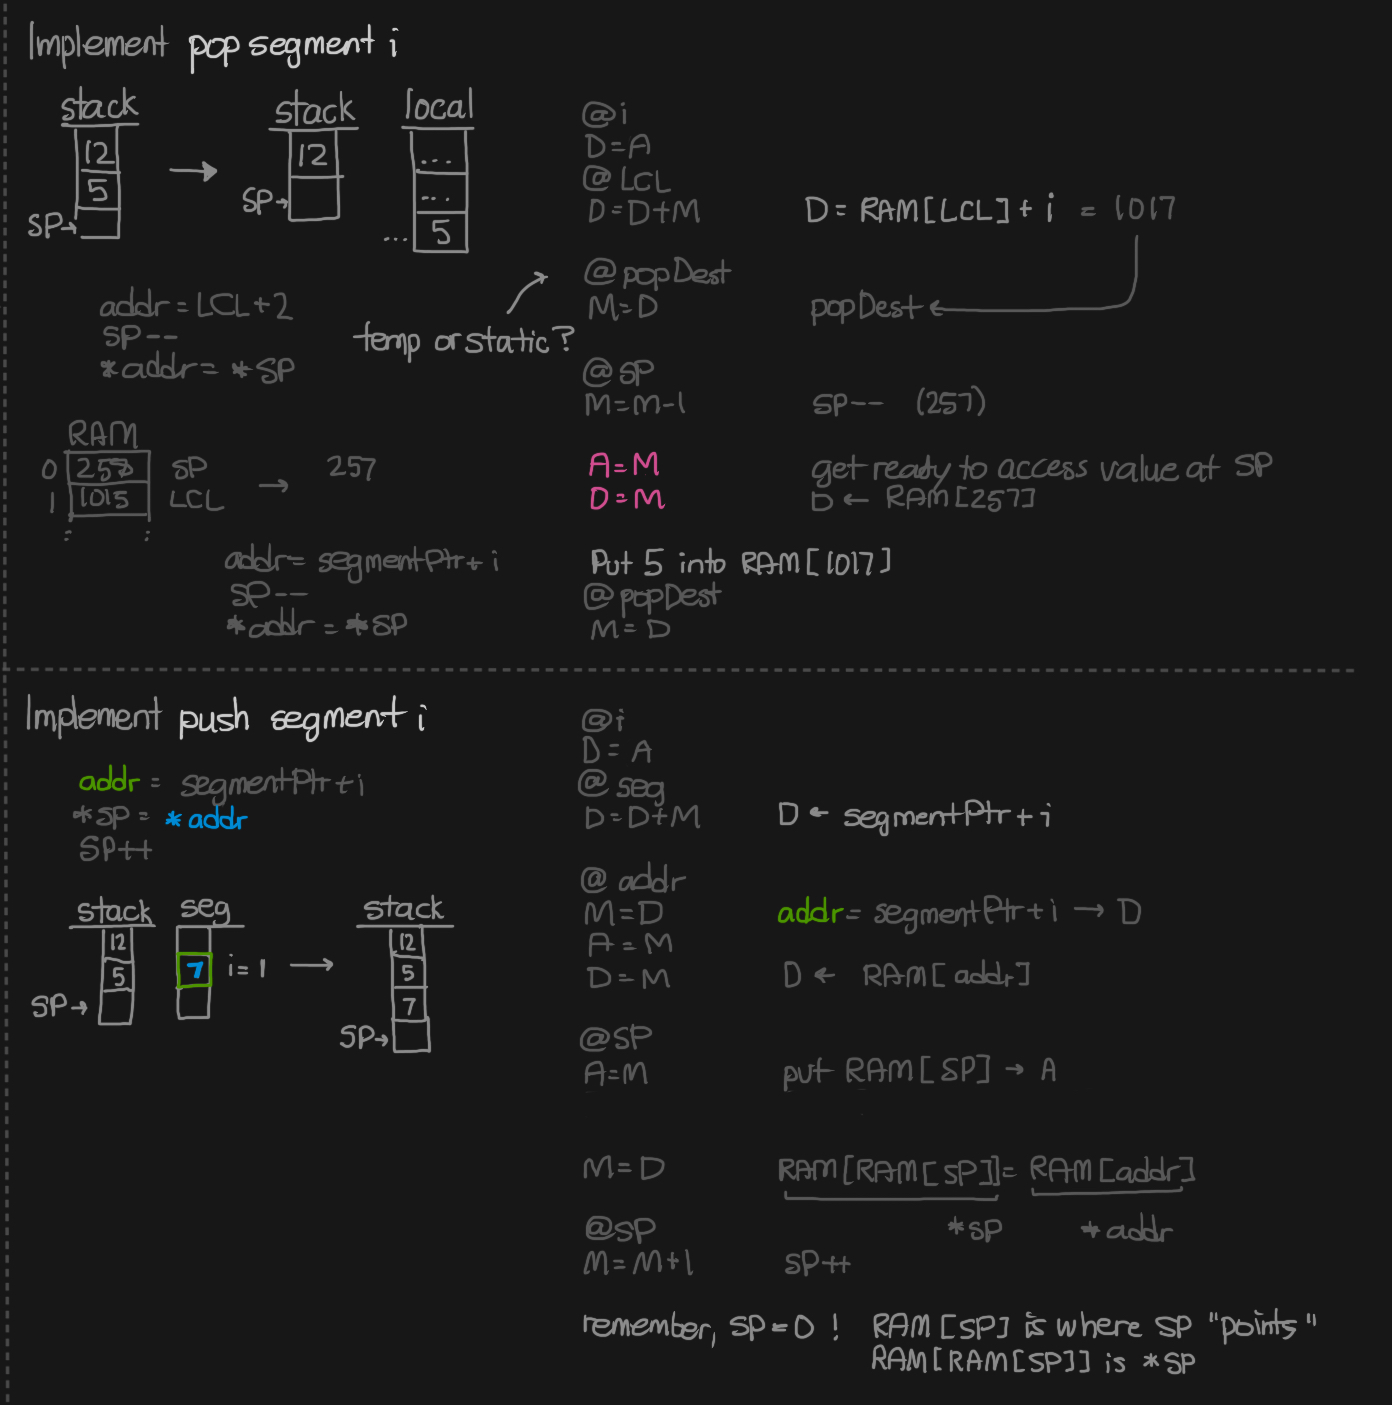 Implement pop segment i
stack
12
5
SP→
→
stack
12
SP→
local
...
...
... 5
addr = LCL+2
SP--
*addr = *SP
temp or static?
RAM
0 258 SP
1 1015 LCL
: :
→ 257
addr = segmentPtr + i
SP--
*addr = *SP
@i
D=A
@LCL
D=D+M D = RAM[LCL] + i = 1017
@popDest
M=D popDest ←
@SP
M=M-1 SP-- (257)
A=M get ready to access value at SP
D=M D ← RAM[257]
Put 5 into RAM[1017]
@popDest
M=D
Implement push segment i
addr = segmentPtr + i
*SP = *addr
SP++
stack
12
5
SP→
seg
7 i=1 →
stack
12
5
7
SP→
@i
D=A
@seg
D=D+M D ← segmentPtr + i
@addr
M=D addr = segmentPtr + i → D
A=M
D=M D ← RAM[addr]
@SP
A=M put RAM[SP] → A
M=D RAM[RAM[SP]] = RAM[addr]
*SP *addr
@SP
M=M+1 SP++
remember, SP=0! RAM[SP] is where SP "points"
RAM[RAM[SP]] is *SP